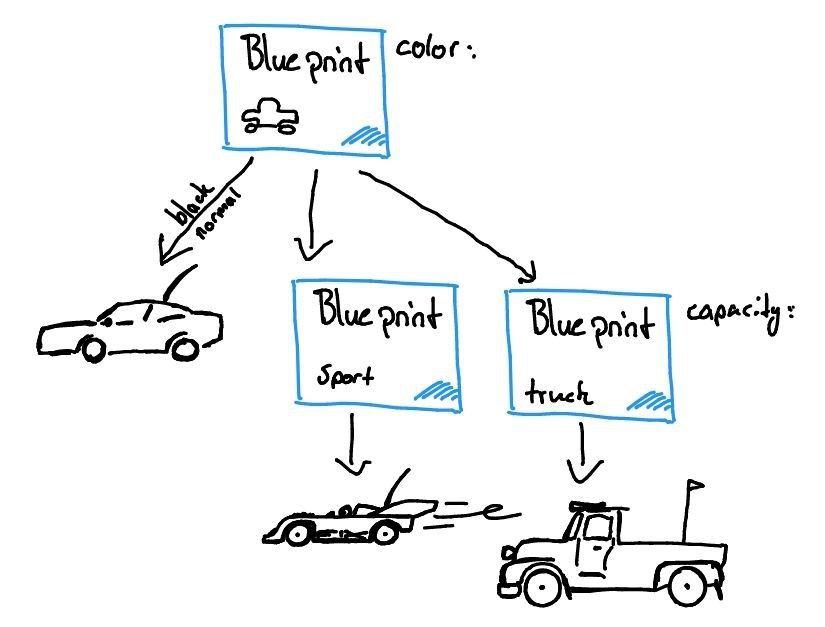 Blue print
color:
black
normal
Blue print
sport
Blue print
truck
capacity: